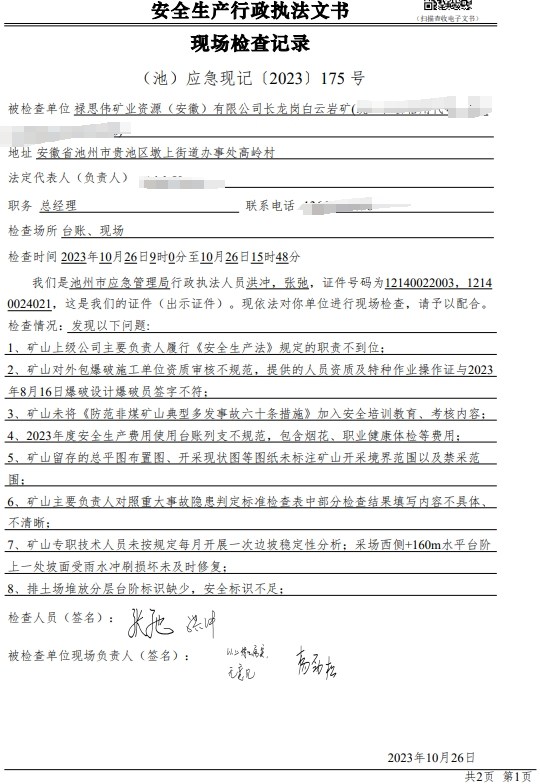 安全生产行政执法文书
（扫描查收电子文书）
现场检查记录
（池）应急现记〔2023〕175 号
被检查单位 禄思伟矿业资源（安徽）有限公司长龙岗白云岩矿(
地址 安徽省池州市贵池区墩上街道办事处高岭村
法定代表人（负责人）
职务 总经理 联系电话
检查场所 台账、现场
检查时间 2023年10月26日9时0分至10月26日15时48分
我们是池州市应急管理局行政执法人员洪冲，张弛，证件号码为12140022003，1214
0024021，这是我们的证件（出示证件）。现依法对你单位进行现场检查，请予以配合。
检查情况：发现以下问题:
1、矿山上级公司主要负责人履行《安全生产法》规定的职责不到位；
2、矿山对外包爆破施工单位资质审核不规范，提供的人员资质及特种作业操作证与2023
年8月16日爆破设计爆破员签字不符；
3、矿山未将《防范非煤矿山典型多发事故六十条措施》加入安全培训教育、考核内容；
4、2023年度安全生产费用使用台账列支不规范，包含烟花、职业健康体检等费用；
5、矿山留存的总平图布置图、开采现状图等图纸未标注矿山开采境界范围以及禁采范
围；
6、矿山主要负责人对照重大事故隐患判定标准检查表中部分检查结果填写内容不具体、
不清晰；
7、矿山专职技术人员未按规定每月开展一次边坡稳定性分析；采场西侧+160m水平台阶
上一处坡面受雨水冲刷损坏未及时修复；
8、排土场堆放分层台阶标识缺少，安全标识不足；
检查人员（签名）： 张弛 洪冲
被检查单位现场负责人（签名）： 以上情况属实，
无意见 高劲松
2023年10月26日
共2页 第1页